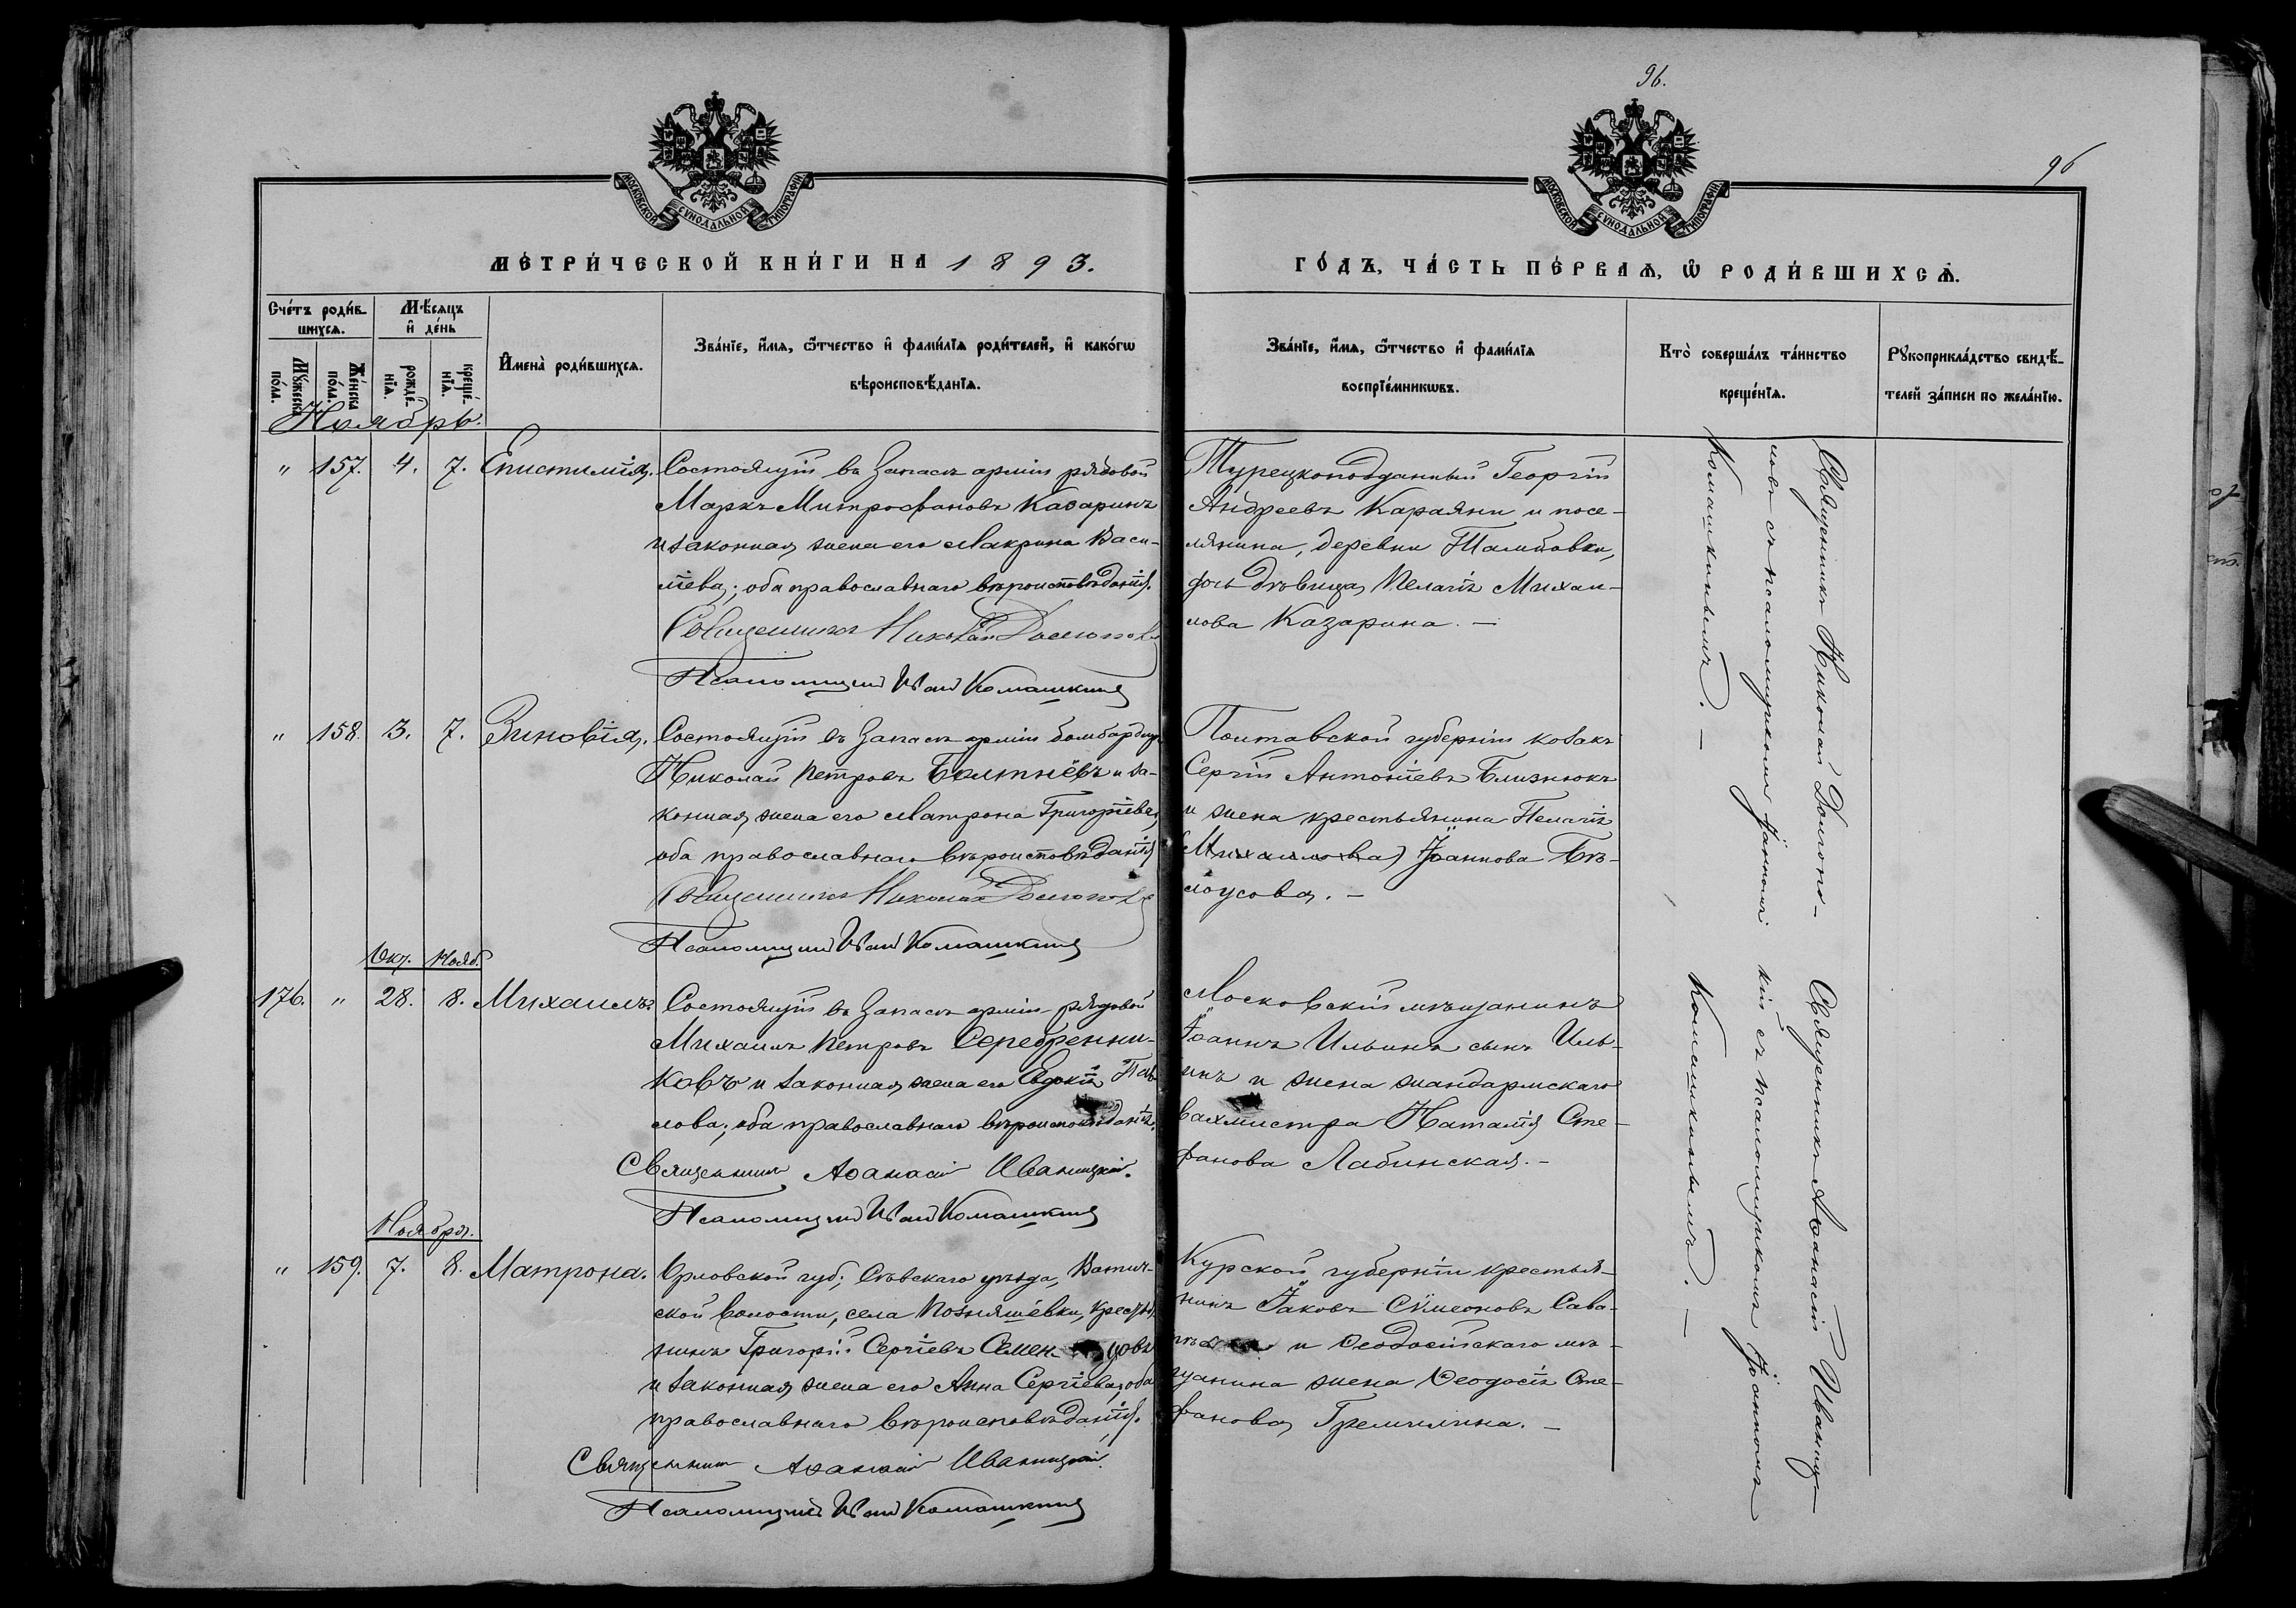 96.
96
МОСКОВСКОЙ СѴНОДАЛЬНОЙ ТИПОГРАФІИ
МОСКОВСКОЙ СѴНОДАЛЬНОЙ ТИПОГРАФІИ
МЕТРИ́ЧЕСКОЙ КНИ́ГИ НА 1893.
ГО́ДЪ, ЧА́СТЬ ПЕ́РВАѦ, Ѡ҆ РОДИ́ВШИХСѦ.
Сче́тъ роди́в-
шихсѧ.
Мѣ́сѧцъ
и҆ де́нь
Мꙋ́жеска
по́ла.
Же́нска
по́ла.
рожде́-
нїѧ.
креще́-
нїѧ.
И҆мена̀ роди́вшихсѧ.
Зва́нїе, и҆́мѧ, ѻ҆́тчество и҆ фами́лїѧ роди́телей, и҆ како́гѡ
вѣроисповѣ́данїѧ.
Зва́нїе, и҆́мѧ, ѻ҆́тчество и҆ фами́лїѧ
воспрїе́мникѡвъ.
Кто̀ соверша́лъ та́инство
креще́нїѧ.
Рꙋкоприкла́дство свидѣ́-
телей за́писи по жела́нїю.
Ноябрь.
" 157. 4. 7. Епистимія.
Состоящій въ запасѣ арміи рядовой
Маркъ Митрофановъ Казаринъ
и законная жена его Макрина Васи-
ліева; оба православнаго вѣроисповѣданія.
Священникъ Николай Долгополовъ
Псаломщикъ Иоаннъ Комашкинъ
Турецкоподданный Георгій
Андреевъ Караяни и посе-
лянина, деревни Тамбовки,
дочь дѣвица Пелагія Михаи-
лова Казарина. —
Священникъ Николай Долгопо-
ловъ съ псаломщикомъ Іоанномъ
Комашкинымъ. —
" 158. 3. 7. Зиновія.
Состоящій въ запасѣ арміи бомбардиръ
Николай Петровъ Болтнёвъ и за-
конная жена его Матрона Григоріева,
оба православнаго вѣроисповѣданія
Священникъ Николай Долгополовъ
Псаломщикъ Иоаннъ Комашкинъ
Полтавской губерніи козакъ
Сергій Антоніевъ Близнюкъ
и жена крестьянина Пелагія
(Михаилова) Іоаннова Бѣ-
лоусова. —
Окт. Нояб.
176. " 28. 8. Михаилъ.
Состоящій въ запасѣ арміи рядовой
Михаилъ Петровъ Серебренни-
ковъ и законная жена его Евдокія Пав-
лова; оба православнаго вѣроисповѣданія.
Священникъ Аѳанасій Иваницкій.
Псаломщикъ Иоаннъ Комашкинъ
Московскій мѣщанинъ
Іоаннъ Ильинъ сынъ Иль-
инъ и жена жандармскаго
вахмистра Наталія Сте-
фанова Лабинская. —
Священникъ Аѳанасій Иваниц-
кій съ псаломщикомъ Іоанномъ
Комашкинымъ. —
Ноября.
" 159. 7. 8. Матрона.
Орловской губ; Сѣвскаго уѣзда,
ской волости, села Познящёвки, крестья-
нинъ Григорій Сергіевъ
и законная жена его Анна Сергіева, оба
православнаго вѣроисповѣданія.
Священникъ Аѳанасій Иваницкій.
Псаломщикъ Иоаннъ Комашкинъ
Курской губерніи крестья-
нинъ Іаковъ Сѵмеоновъ Сава-
и Ѳеодосійскаго мѣ-
щанина жена Ѳеодосія Сте-
фанова Гремилина. —